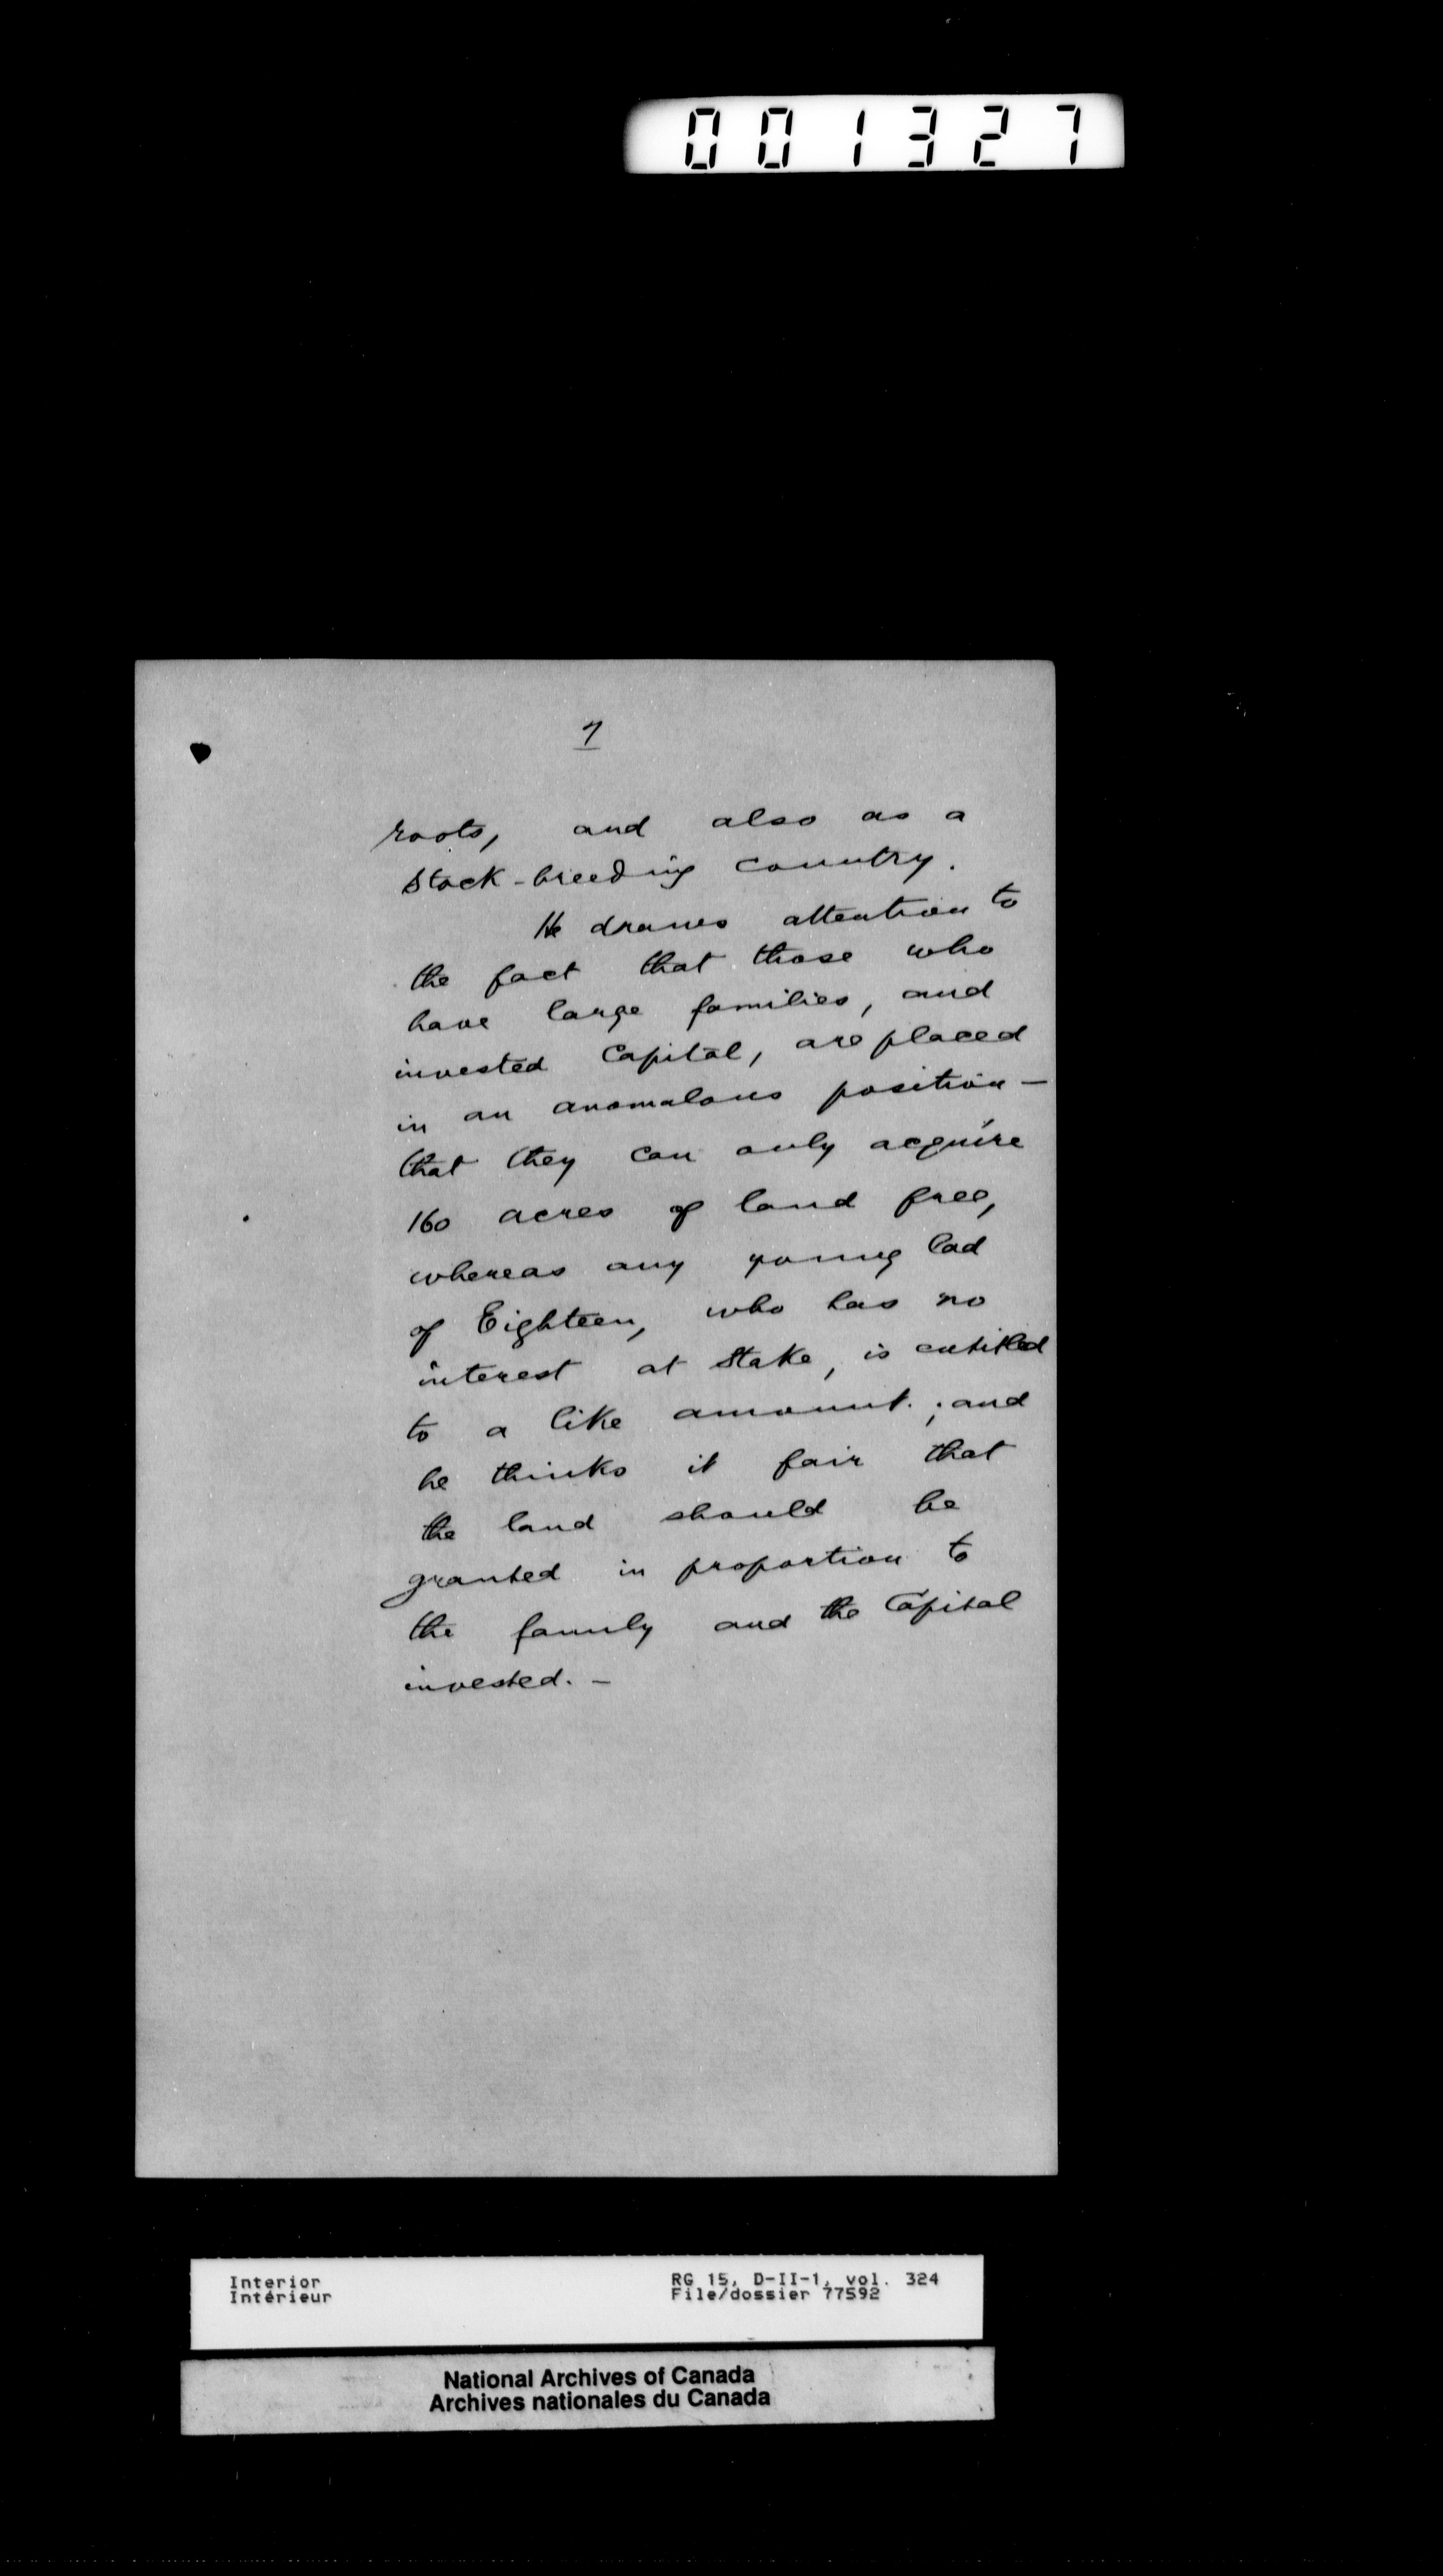 001327
7
roots, and also as a
stock-breeding country.
He draws attention to
the fact that those who
have large families, and
invested Capital, are placed
in an anomalous position —
that they can only acquire
160 acres of land free,
whereas any young lad
of Eighteen, who has no
interest at stake, is entitled
to a like amount; and
he thinks it fair that
the land should be
granted in proportion to
the family and the Capital
invested. —
Interior
Intérieur
RG 15, D-II-1, vol. 324
File/dossier 77592
National Archives of Canada
Archives nationales du Canada